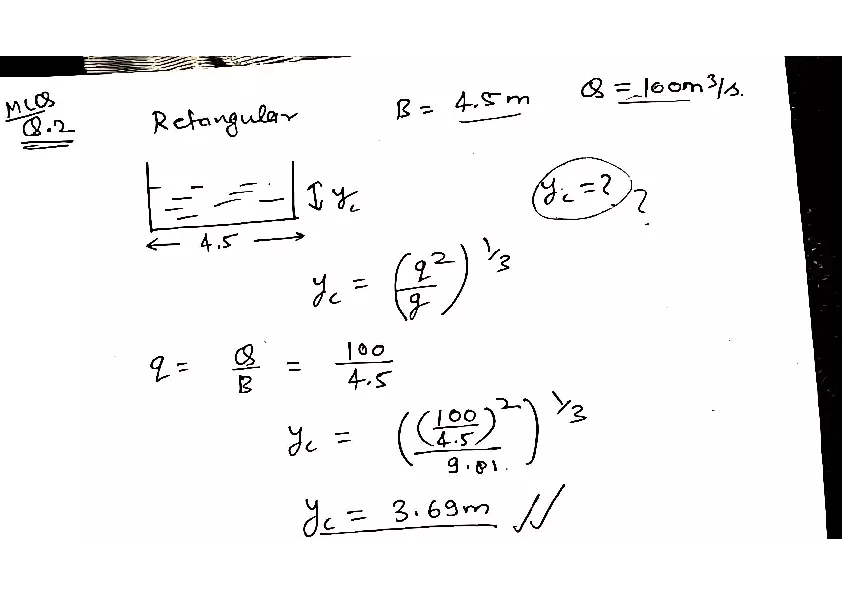 MCQS
Q.2
Retangular B = 4.5m Q = 100m³/s.
y_c
y_c = ? ?
4.5
y_c = (q²/g)^1/3
q = Q/B = 100/4.5
y_c = ((100/4.5)²/9.81)^1/3
y_c = 3.69m //